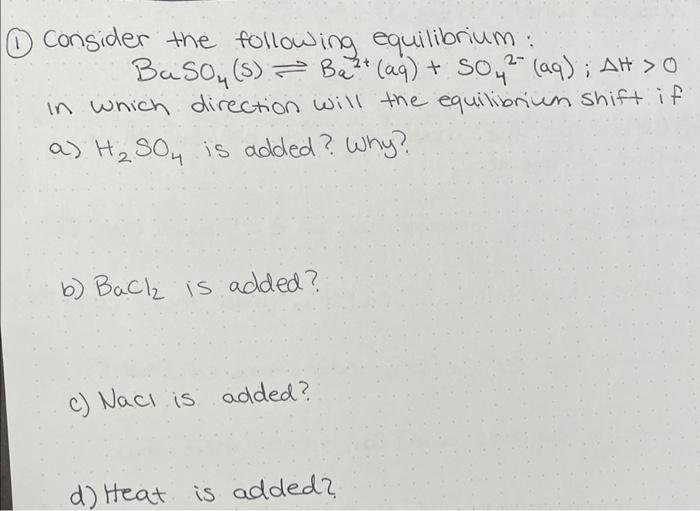 ① Consider the following equilibrium:
BaSO₄(s) ⇌ Ba²⁺(aq) + SO₄²⁻(aq); ΔH > 0
in which direction will the equilibrium shift if
a) H₂SO₄ is added? Why?
b) BaCl₂ is added?
c) NaCl is added?
d) Heat is added?